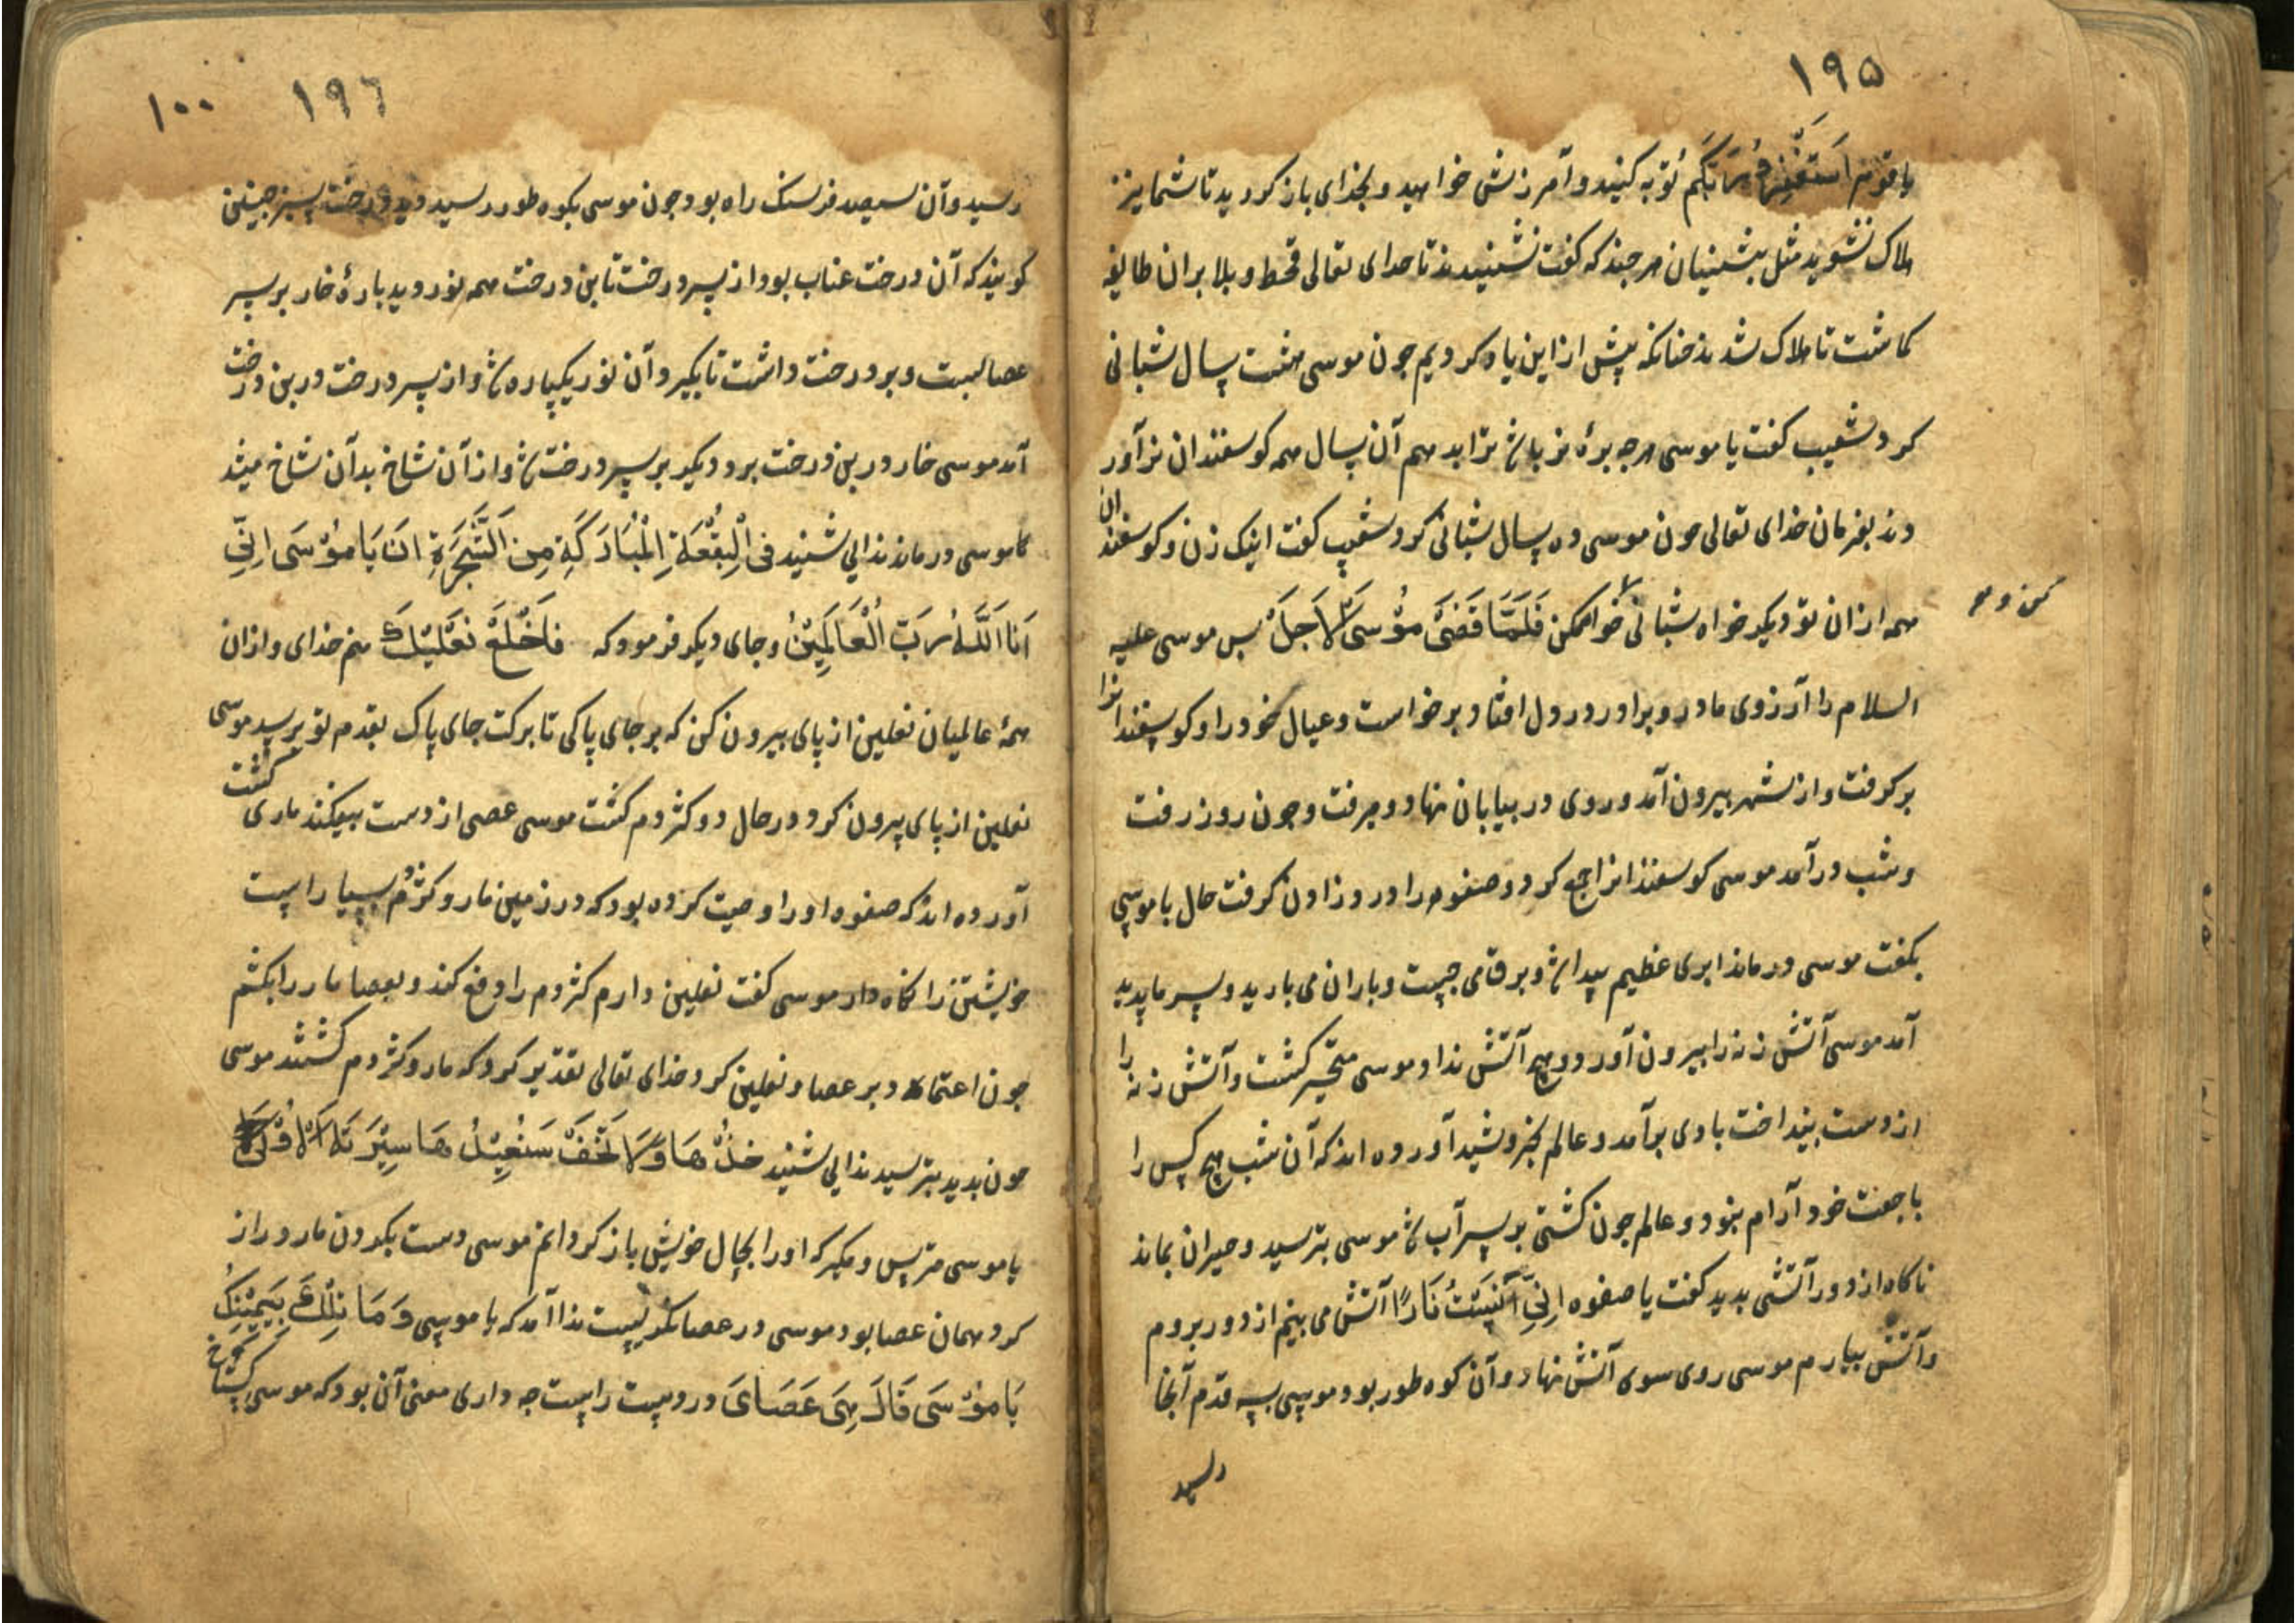 ۱۹۵
یا قوم استغفروا ربکم توبه کنید و آمرزش خواهید و بخذای باز کردید تا شما نیز
هلاک نشوید مثل پیشینیان هر جند که کفت نشنیدند تا خدای تعالی قحط و بلا بر ان طایفه
کماشت تا هلاک شدند جنانکه پیش از این یاد کردیم جون موسی هشت سال شبانی
کرد شعیب کفت یا موسی هر جه برهٔ نر باشد ترا بد هم آن سال همه کوسفندان نر آور
دند بفرمان خدای تعالی جون موسی ده سال شبانی کرد شعیب کفت اینک زن و کوسفندان
همه از ان تو دیکر خواه شبانی خواه مکن فَلَمَّا قَضَیٰ مُوْسَی الاَجَلَ بس موسی علیه
السلام را آرزوی مادر و برادر در دل افتاد برخواست و عیال خود را و کوسفندانرا
برکرفت و از شهر بیرون آمد و روی در بیابان نهاد و میرفت و جون روز رفت
و شب در آمد موسی کوسفندانرا جمع کرد و صفوه را درد زادن کرفت حال با موسی
بکفت موسی درماند ابری عظیم پیدا شد و برق می جست و باران می بارید و سرما پدید
آمد موسی آتش زنه را بیرون آورد و هیچ آتش نداد موسی متحیر کشت و آتش زنه را
از دست بینداخت بادی برآمد و عالم بخروشید آورده اند که آن شب هیچ کس را
با جفت خود آرام نبود و عالم جون کشتی بر سر آب شد موسی بترسید و حیران بماند
ناکاه از دور آتشی بدید کفت یا صفوه اِنِّی آنَسْتُ نَارًا آتش می بینم از دور بروم
و آتش بیارم موسی روی سوی آتش نهاد و آن کوه طور بود موسی بسه قدم آنجا
رسید
۱۹٦ ۱۰۰
رسید و آن سیصد فرسنک راه بود جون موسی بکوه طور رسید دید درخت سبز جنین
کویند که آن درخت عناب بود از سر درخت تا بن درخت همه نور دید پارهٔ خار بر سر
عصا بست و بر درخت داشت تا بکیرد آن نور یکپاره شد و از سر درخت در بن درخت
آمد موسی خار در بن درخت برد دیکر بر سر درخت شد و از آن شاخ بدآن شاخ میشد
تا موسی درماند ندایی شنید فِی الْبُقْعَةِ الْمُبَارَکَةِ مِنَ الشَّجَرَةِ اَنْ یَا مُوْسَی اِنِّی
اَنَا اللّٰهُ رَبُّ الْعَالَمِیْنَ و جای دیکر فرمود که فَاخْلَعْ نَعْلَیْكَ منم خدای و از ان
همهٔ عالمیان نعلین از پای بیرون کن که بر جای پاکی تا برکت جای پاک بقدم تو برسد موسی
نعلین از پای بیرون کرد در حال دو کژدم کشت موسی عصی از دست بیفکند ماری کشت
آورده اند که صفوه او را وصیت کرده بود که در زمین مار و کژدم بسیار است
خویشتن را نکاه دار موسی کفت نعلین دارم کژدم را دفع کند و بعصا مار را بکشم
جون اعتماد بر عصا و نعلین کرد خدای تعالی تقدیر کرد که مار و کژدم کشتند موسی
جون بدید بترسید ندایی شنید خُذْهَا وَلَا تَخَفْ سَنُعِیْدُهَا سِیْرَتَهَا الْاُوْلیٰ
یا موسی مترس و بکیر که او را بحال خویش باز کردانم موسی دست بکردن مار دراز
کرد همان عصا بود موسی در عصا نکریست ندا آمد که یا موسی وَمَا تِلْكَ بِیَمِیْنِكَ
یَا مُوْسَی قَالَ هِیَ عَصَایَ در دست راست جه داری معنی آن بود که موسی کستاخ